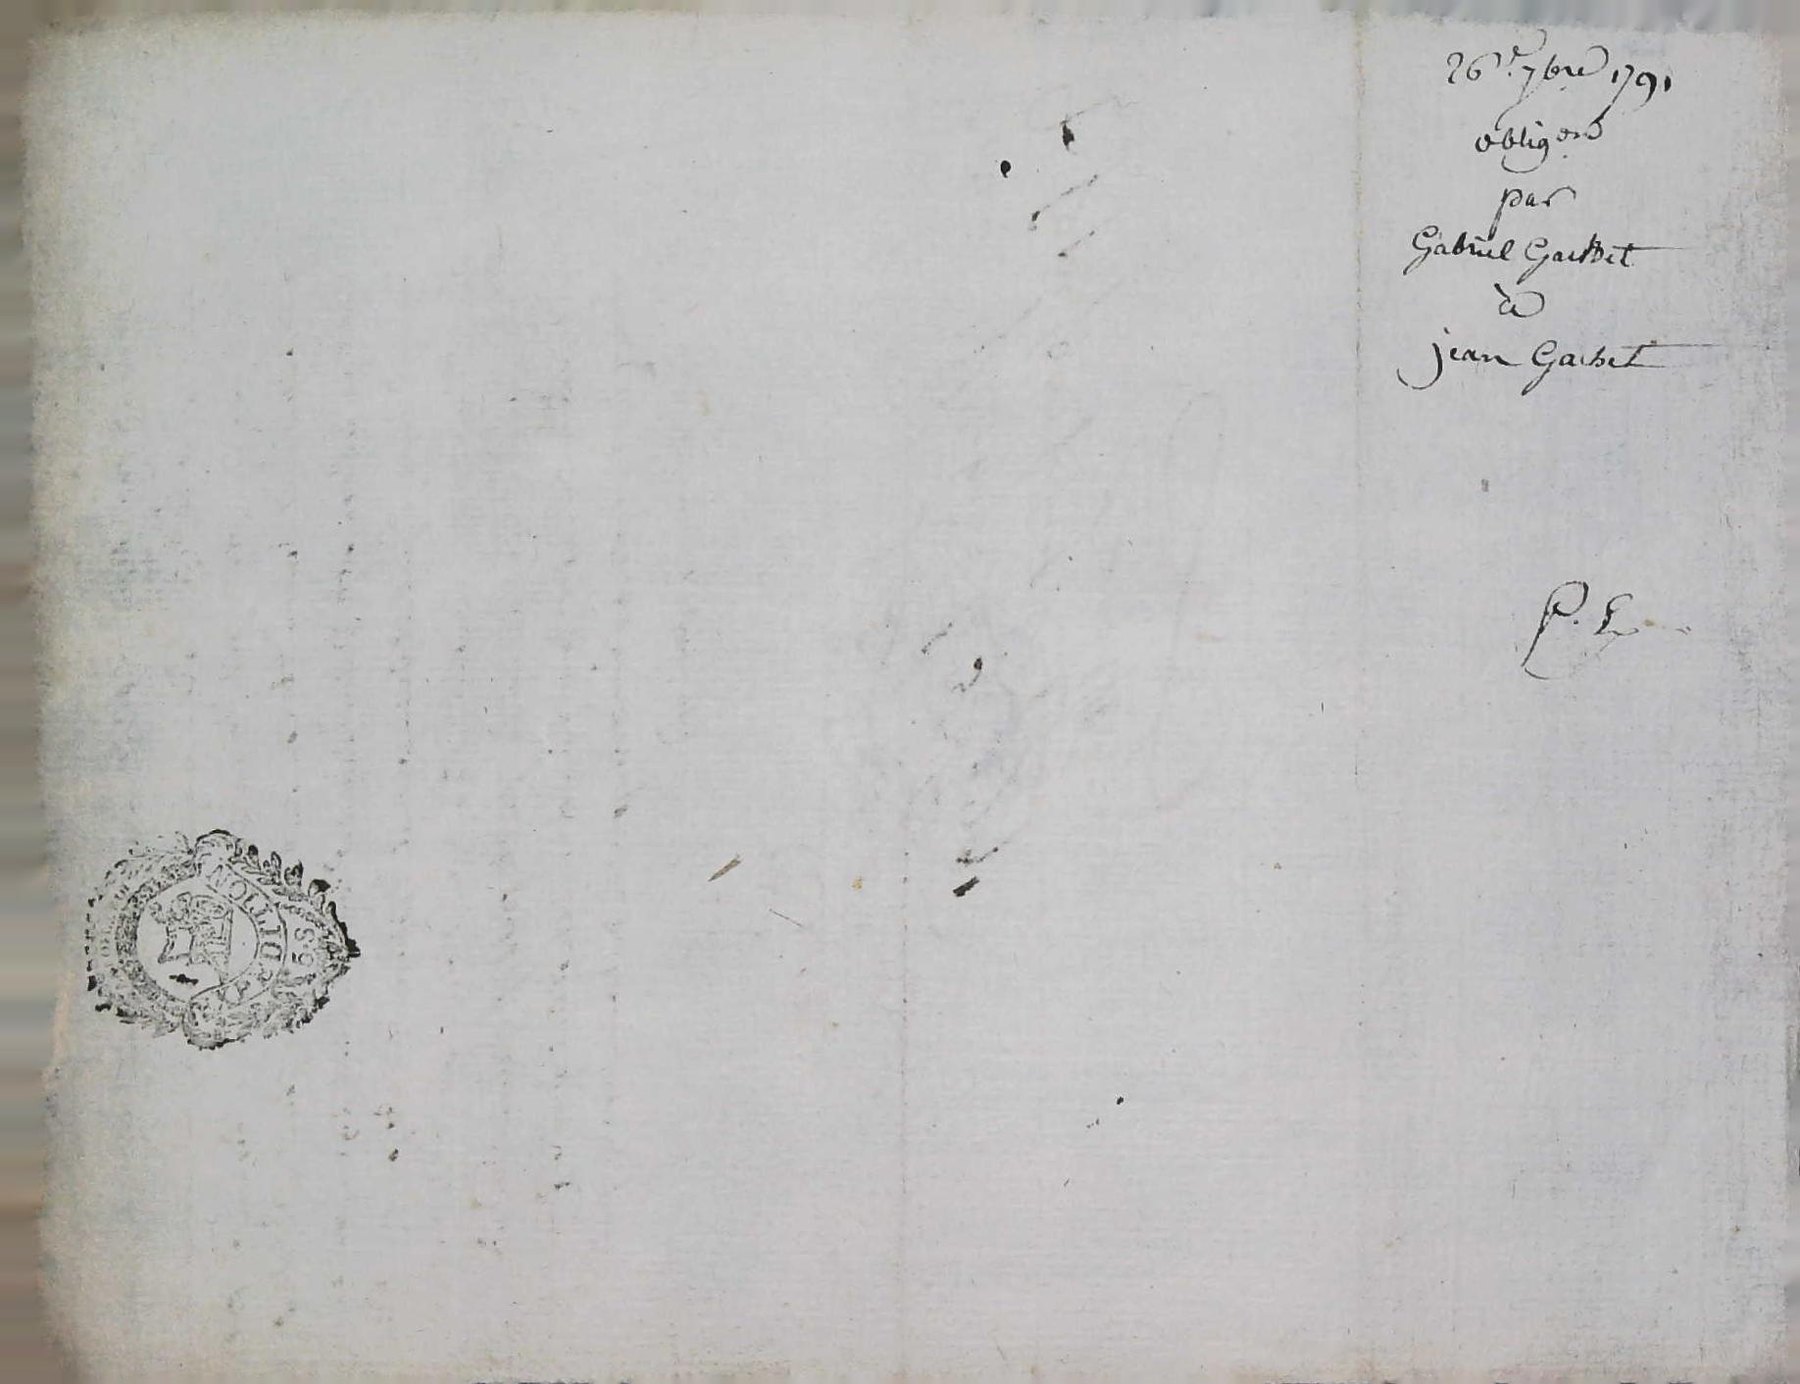 26e. 7bre 1791
obligon
par
Gabriel Gachet
à
jean Gachet
P. Ex